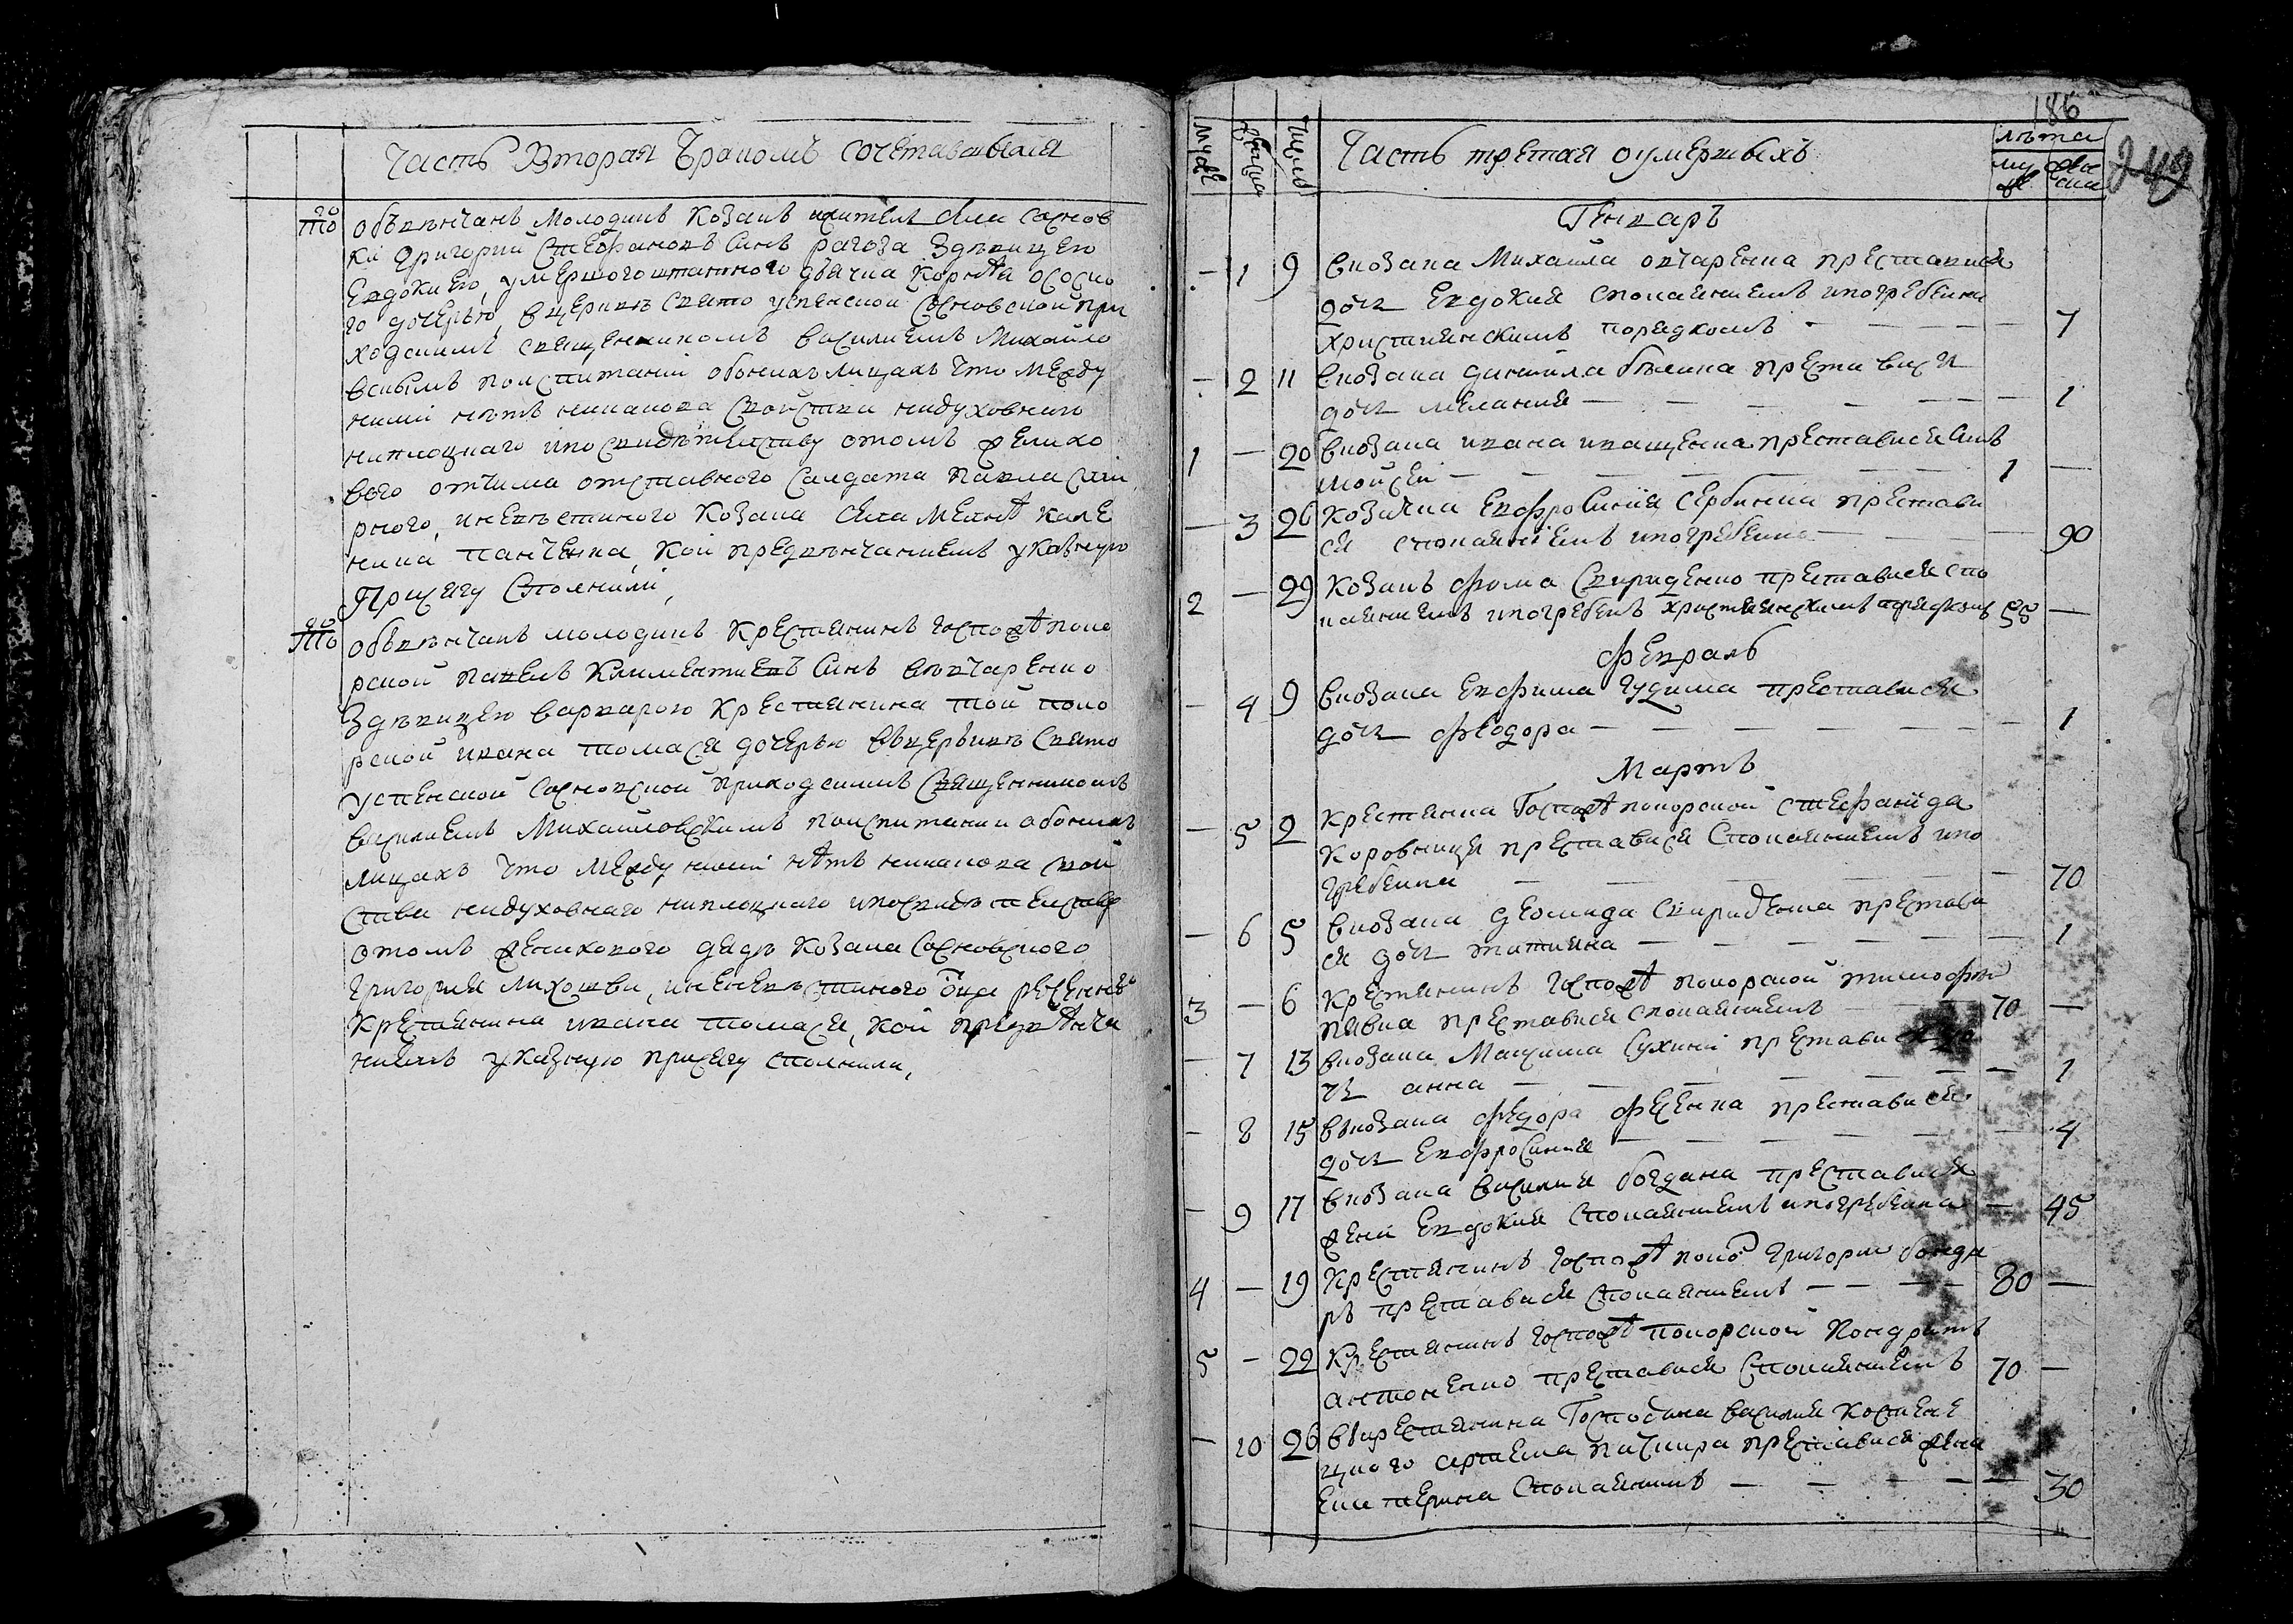 Часть Вторая Бракомъ сочетавшыяся
то обвѣнчанъ молодикъ козакъ житель села соснов
ки григорий Стефановъ Синъ рагоза Здѣвицею
Евдокиею, умершого штатного дячка Корнѣя
го дочерью, вцеркви свято успенской Сосновской при
ходскимъ священникомъ василиемъ Михайло
вскимъ поиспитаний обоихъ лицахъ что между
ними нѣтъ никакова свойства нидуховнаго
ниплоцкаго ипосвидѣтелству отомъ женихо
вого отчима отставного Салдата павла
рного, иневѣстиного козака села
нika панченка, кой предвѣнчаниемъ указную
Присягу Сполнили,
то обвѣнчанъ молодикъ крестянинъ госпожѣ поко
рской павелъ климентиевъ Синъ вовчаренко
Здѣвицею варварою крестянина той поко
рской ивана томася дочерью вцеркви Свято
успенской Сосновской приходскимъ Священникомъ
василиемъ Михайловскимъ поиспитании обоихъ
лицахъ что между ними нѣтъ никакова свой
ства нидуховнаго ниплоцкаго ипосвидѣтелству
отомъ женихового дядѣ козака Сосновского
григория иневѣстиного отца
крестянина ивана томася, кой предвѣнча
ниемъ указную присягу сполнили,
186
249
мужеска
женска
число
Часть третая оумершыхъ
лѣта
му же
жен ска
Генваръ
– 1 9 вкозака Михаила овчаренка преставися
дочь Евдокия спокаяниемъ ипогребенна
християнскимъ порядкомъ – 7
– 2 11 вкозака данила бѣлика преставися
дочь мелания – 1
1 – 20 вкозака ивана иващенка преставися синъ
мойсей – 1 –
– 3 26 козачка Евфросиния сербинка престави
ся спокаяниемъ ипогребенна – 90
2 – 29 козакъ фома Свириденко преставися спо
каяниемъ ипогребенъ християнскимъ порядкомъ 55 –
февраль
– 4 9 вкозака Евфима гудима преставися
дочь феодора – 1
Мартъ
– 5 2 крестянка Госпожѣ покорской стефанида
коровница преставися Спокаяниемъ ипо
гребенна – 70
– 6 5 вкозака деомида Свириденка престави
ся дочь татияна – 1
3 – 6 крестянинъ госпожѣ покорской тимофей
пявка преставися спокаяниемъ – 70 –
– 7 13 вкозака Максима Сухины преставися до
чь анна – 1
– 8 15 вкозака федора фесенка преставися
дочь Евфросиния – 4
– 9 17 вкозака василия богдана преставися
жена Евдокия Спокаяниемъ ипогребенна – 45
4 – 19 крестянинъ госпожѣ поко григорий бонда
ръ преставися Спокаяниемъ – 80 –
5 – 22 крестянинъ госпожѣ покорской кондратъ
антоненко преставися Спокаяниемъ 70 –
– 10 26 вкрестянина Господина василия костене
цкого артема преставися жена
Екатерина Спокаяниемъ – 30